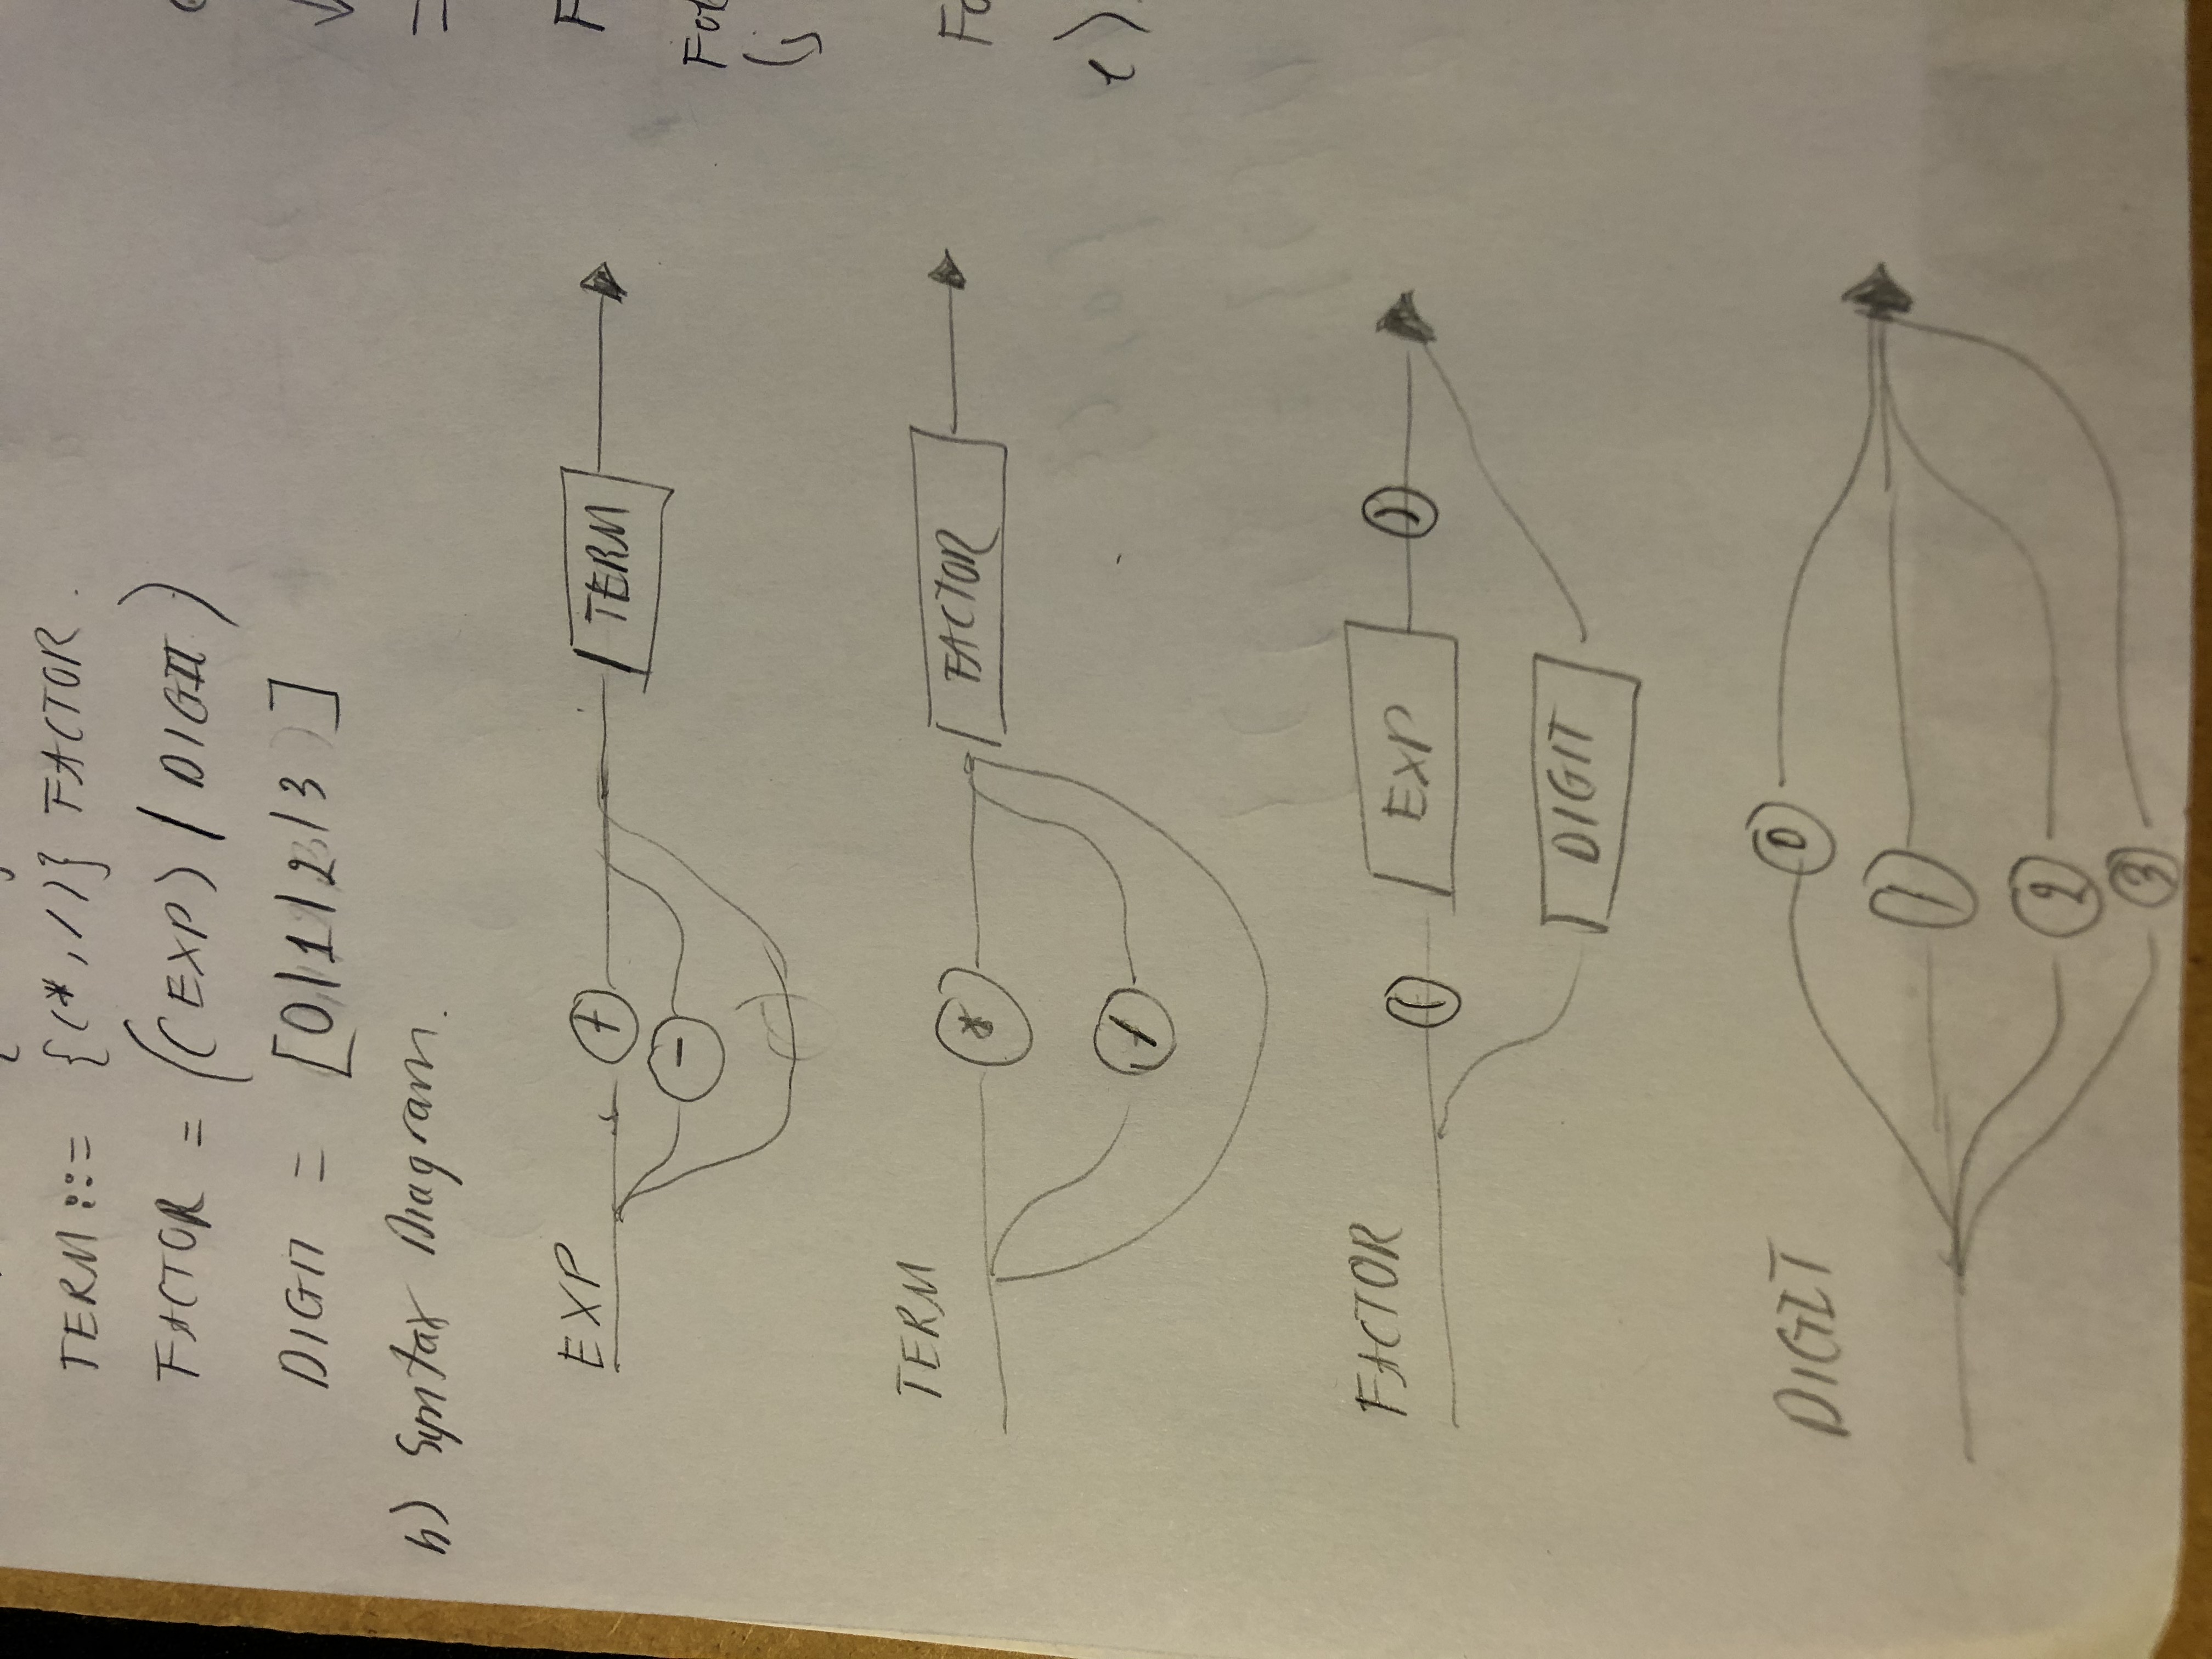 TERM ::= {(*, /)} FACTOR.
FACTOR = ((EXP) / DIGIT)
DIGIT = [0|1|2|3 ]
b) Syntax Diagram.
EXP
+
TERM
-
TERM
*
FACTOR
/
FACTOR
(
EXP
)
DIGIT
DIGIT
0
1
2
3
√
=
F
Fol
(j
Fo
e)